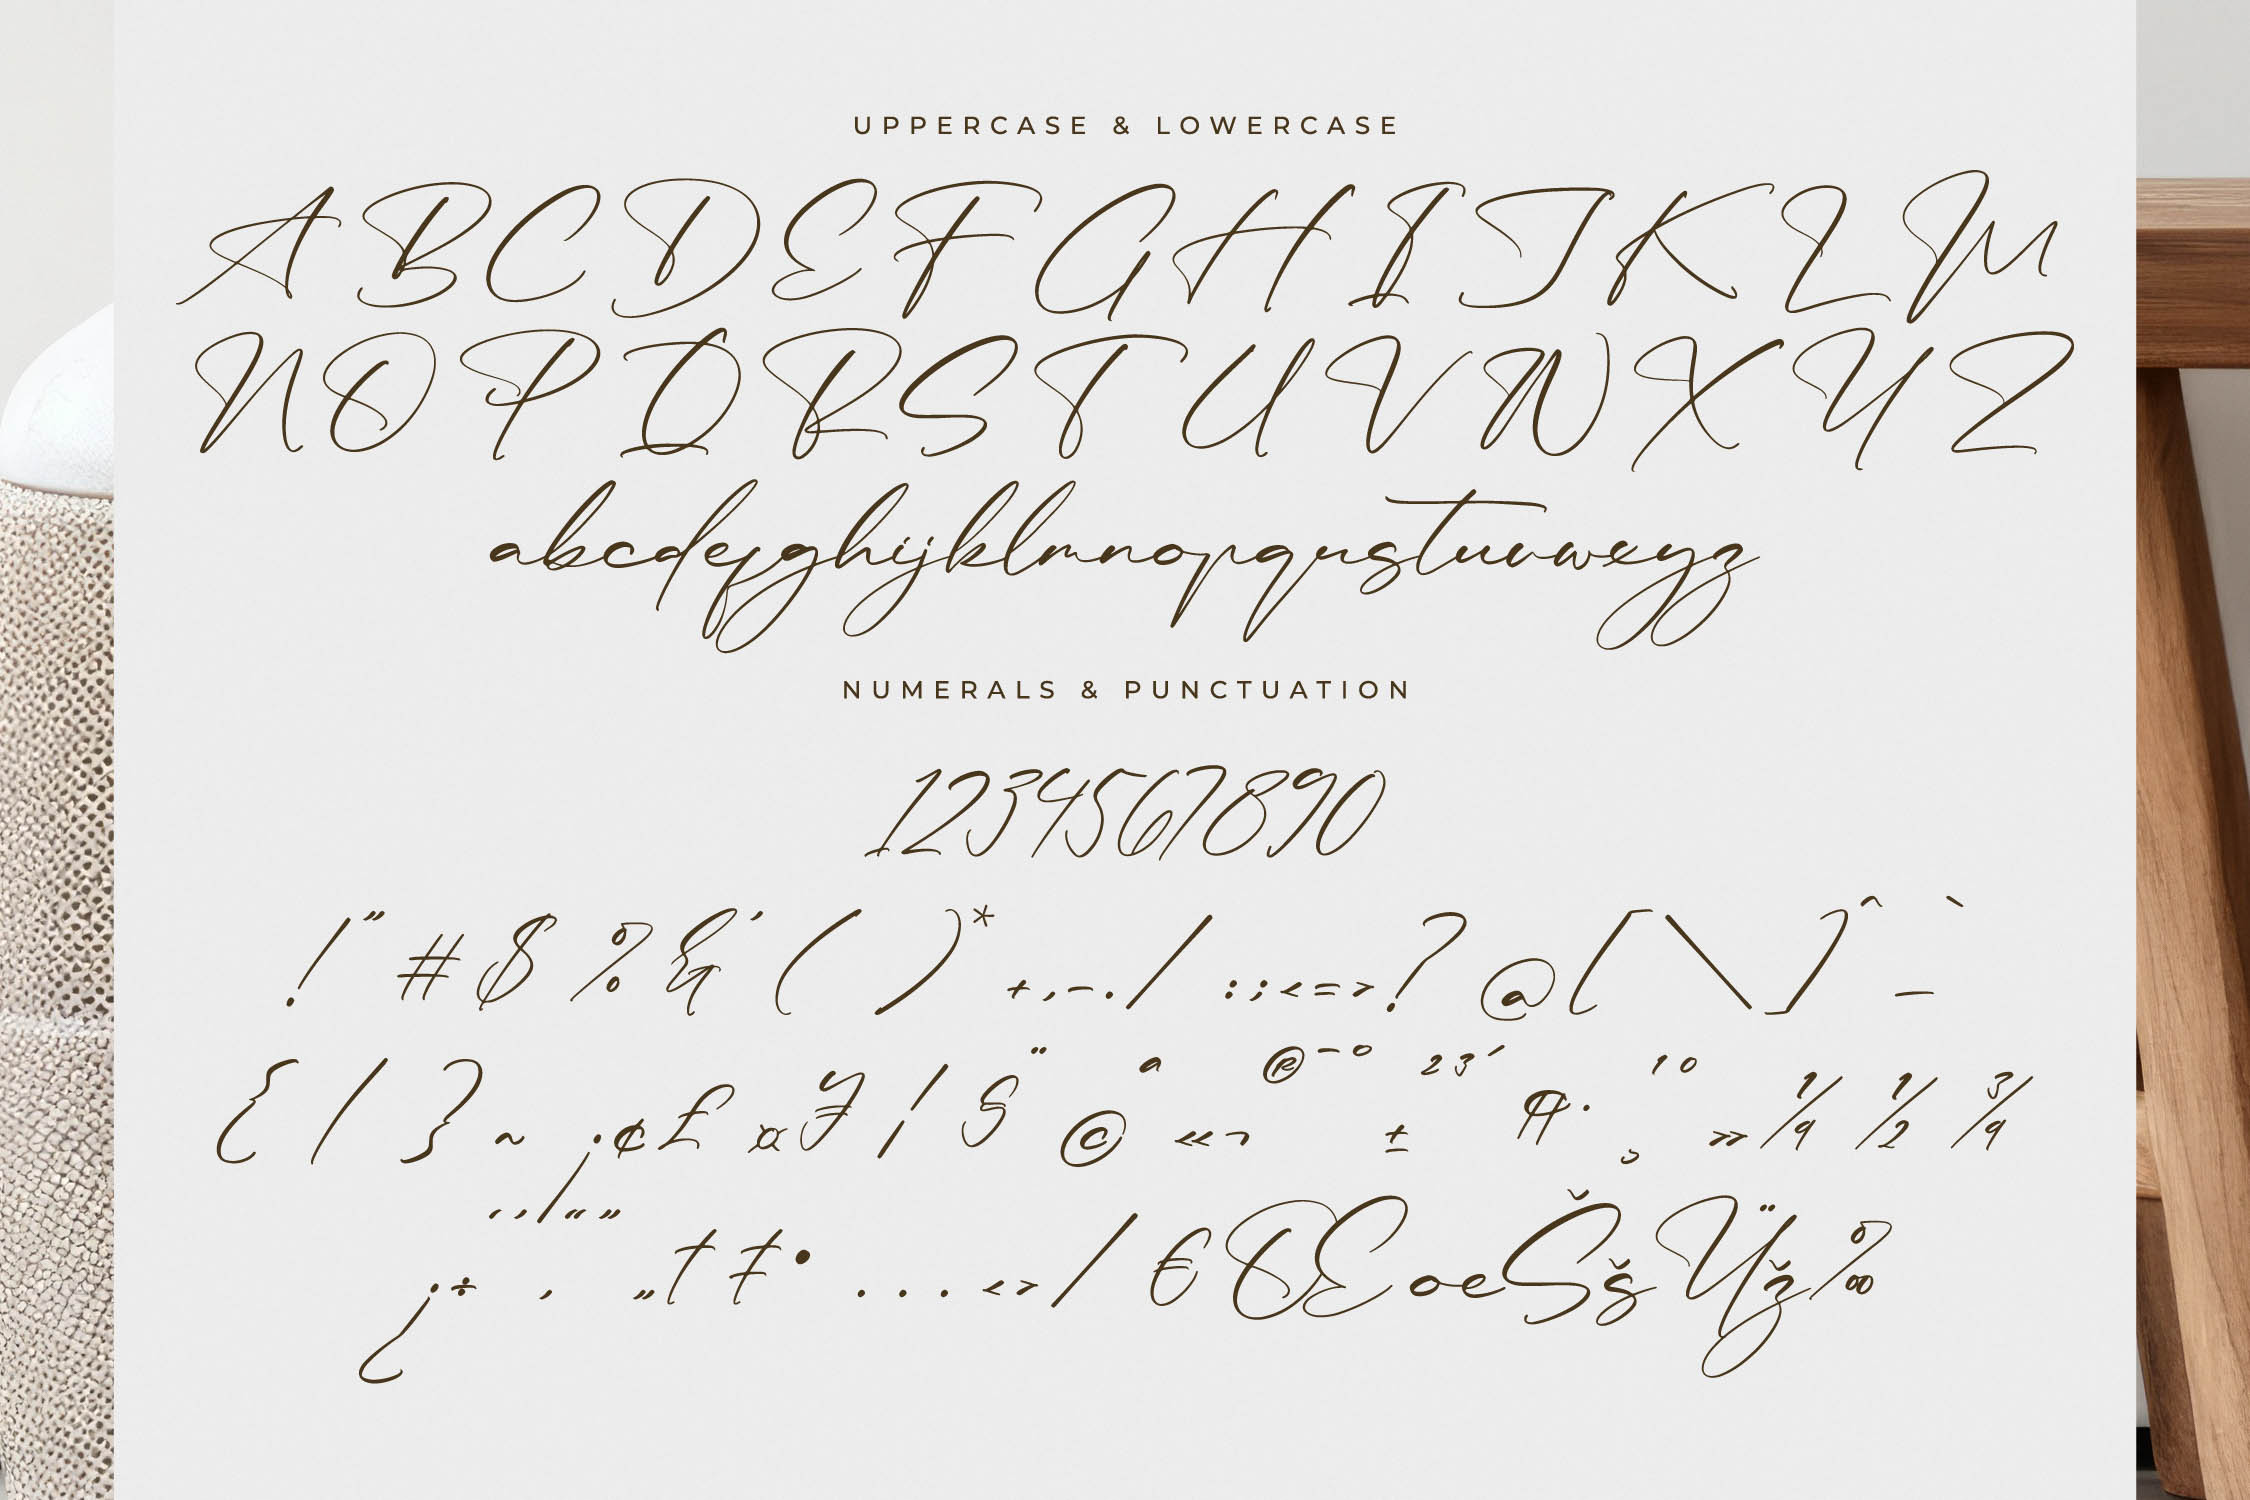 UPPERCASE & LOWERCASE
ABCDEFGHIJKLM
NOPQRSTUVWXYZ
abcdefghijklmnopqrstuvwxyz
NUMERALS & PUNCTUATION
1234567890
!"#$%&'()*+,-./:;<=>?@[\]^_`
{|}~¡¢£¤¥¦§¨©ª«¬®¯°±²³´¶·¸¹º»¼½¾
¿÷‘’‚“”„†‡•...‹›⁄€ŒœŠšŸž‰